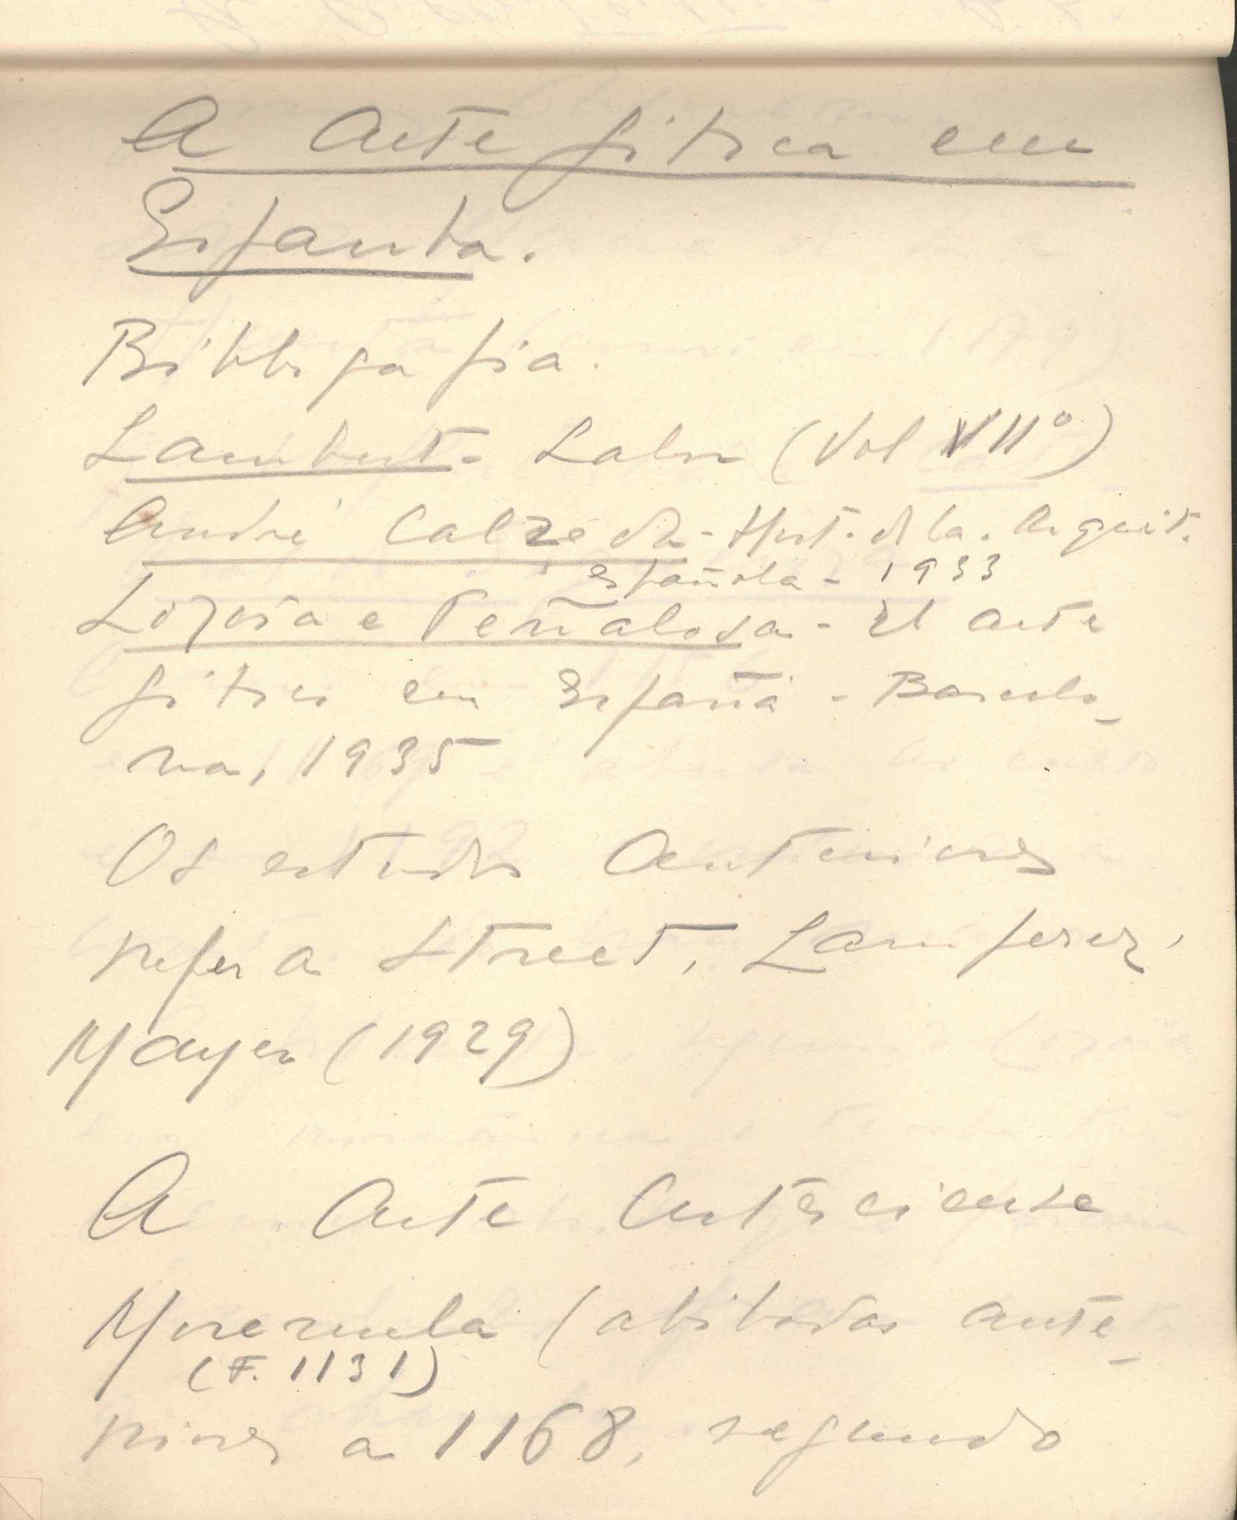 A Arte gótica em
Espanha.
Bibliografia.
Lambert - Labor (Vol VIIº)
André Calzeda - Hist. de la. Arquit.
Española - 1933
Lozoia e Peñalosa - El arte
gótico en España - Barcelo-
na, 1935
Os estudos anteriores
refer a Street, Lamperez,
Mayer (1929)
A Arte Cisterciense
Moreruela (abóbadas ante-
(F. 1131)
riores a 1168, segundo